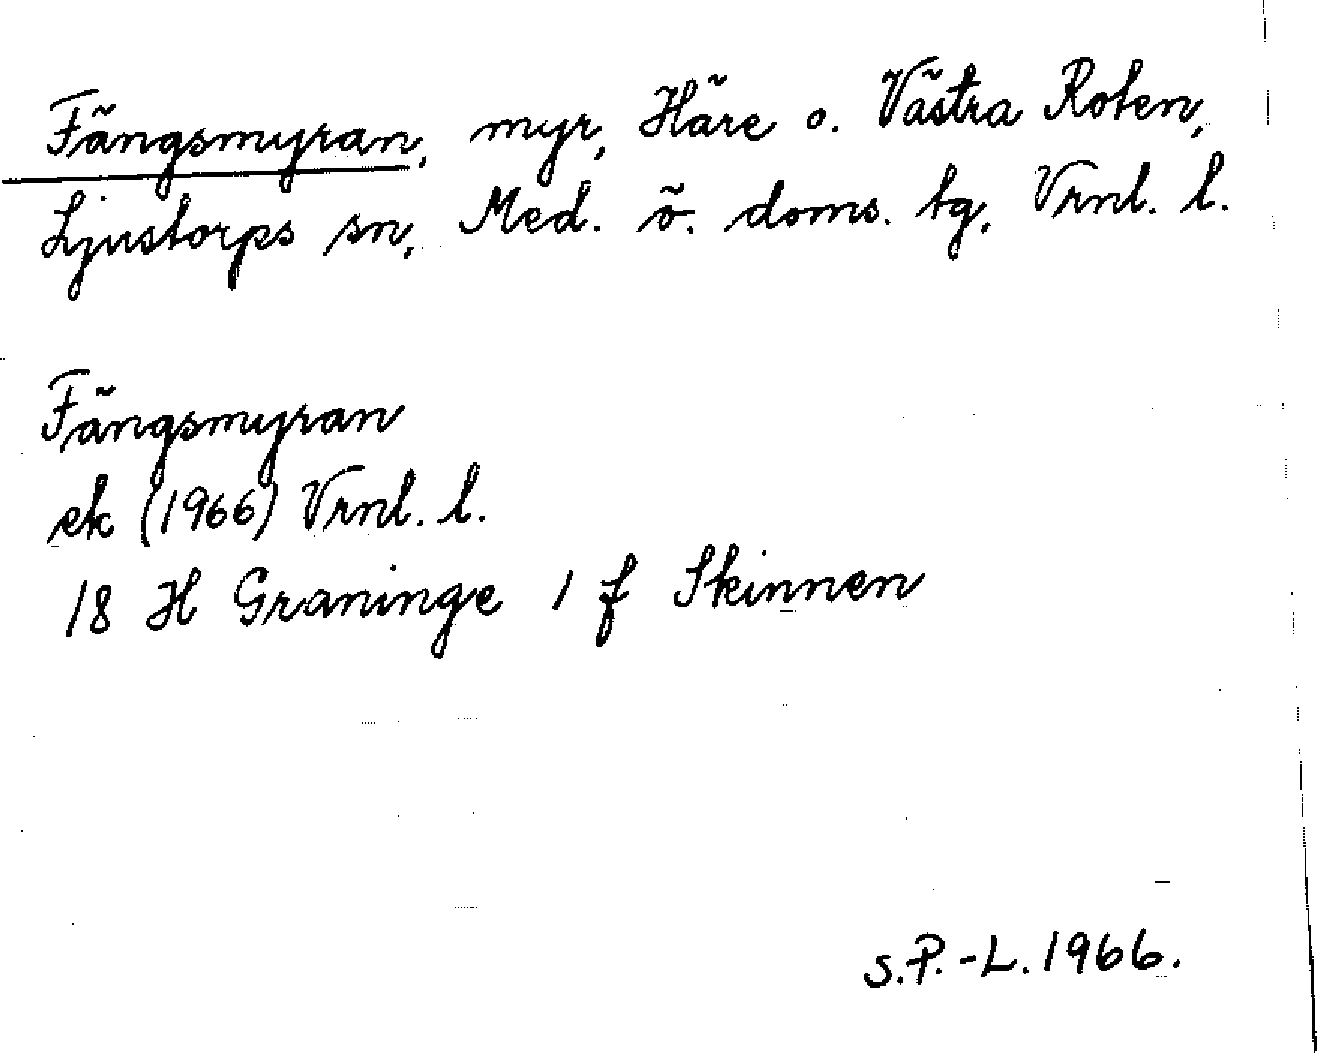 Fängsmyran, myr, Häre o. Västra Roten,
Ljustorps sn, Med. ö. doms. tg, Vrnl. l.
Fängsmyran
ek (1966) Vrnl. l.
18 H Graninge 1 f Skinnen
S.P.-L. 1966.